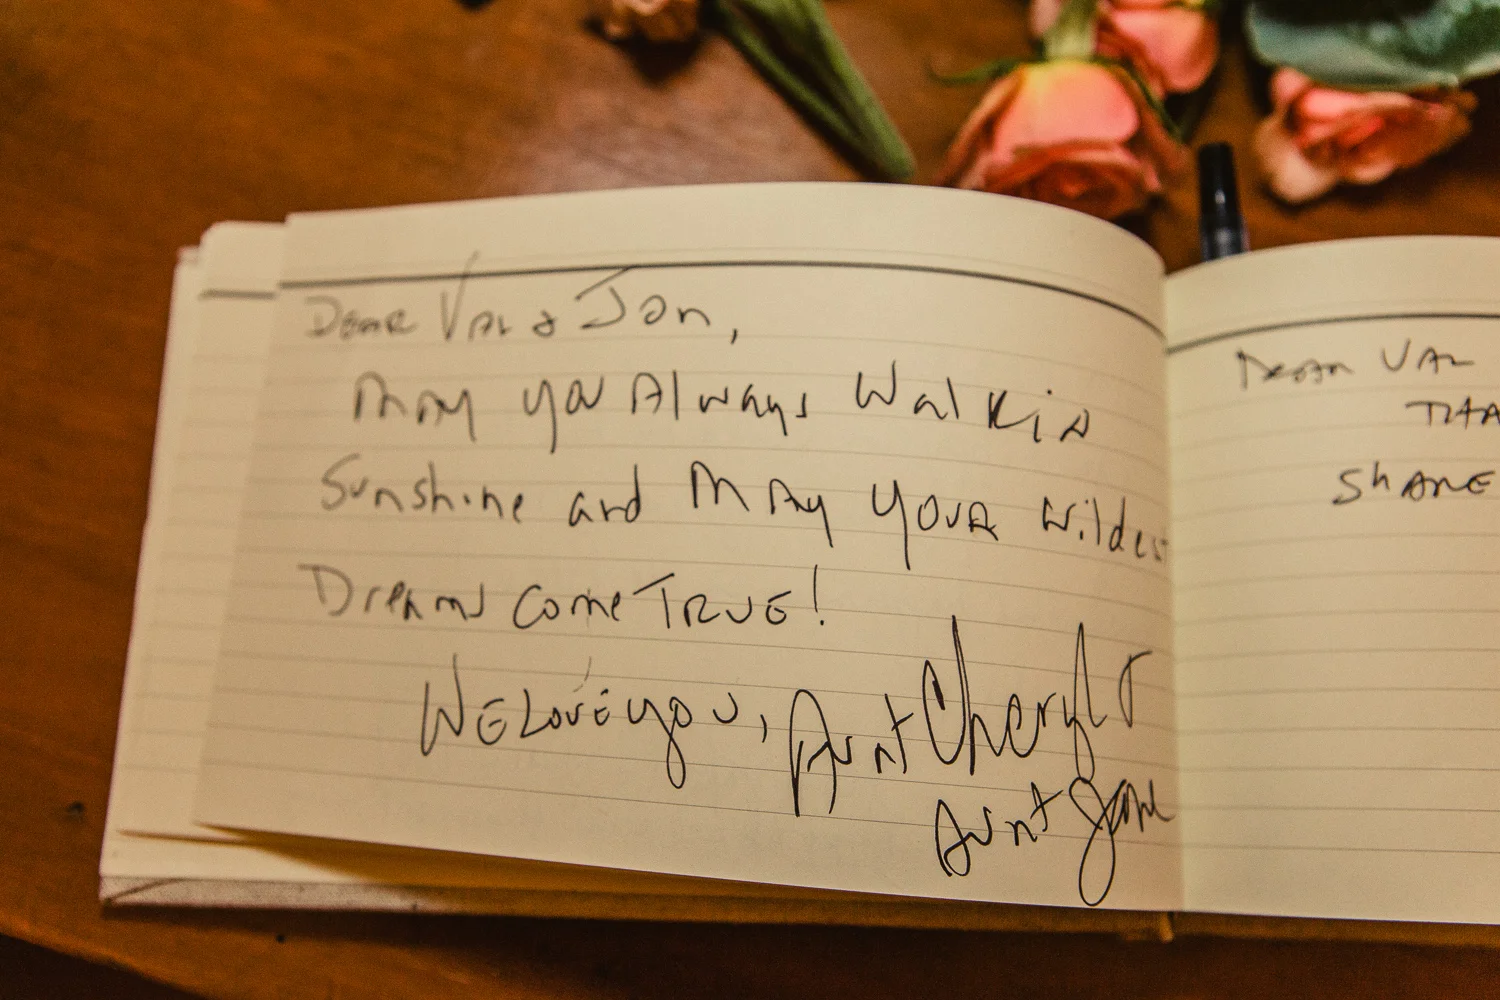 Dear Val & Jon,
May you Always Walk in
Sunshine and May your wildest
Dreams come TRUE!
We Love you, Aunt Cheryl &
Aunt Jane
Dear VAL
THA
SHARE